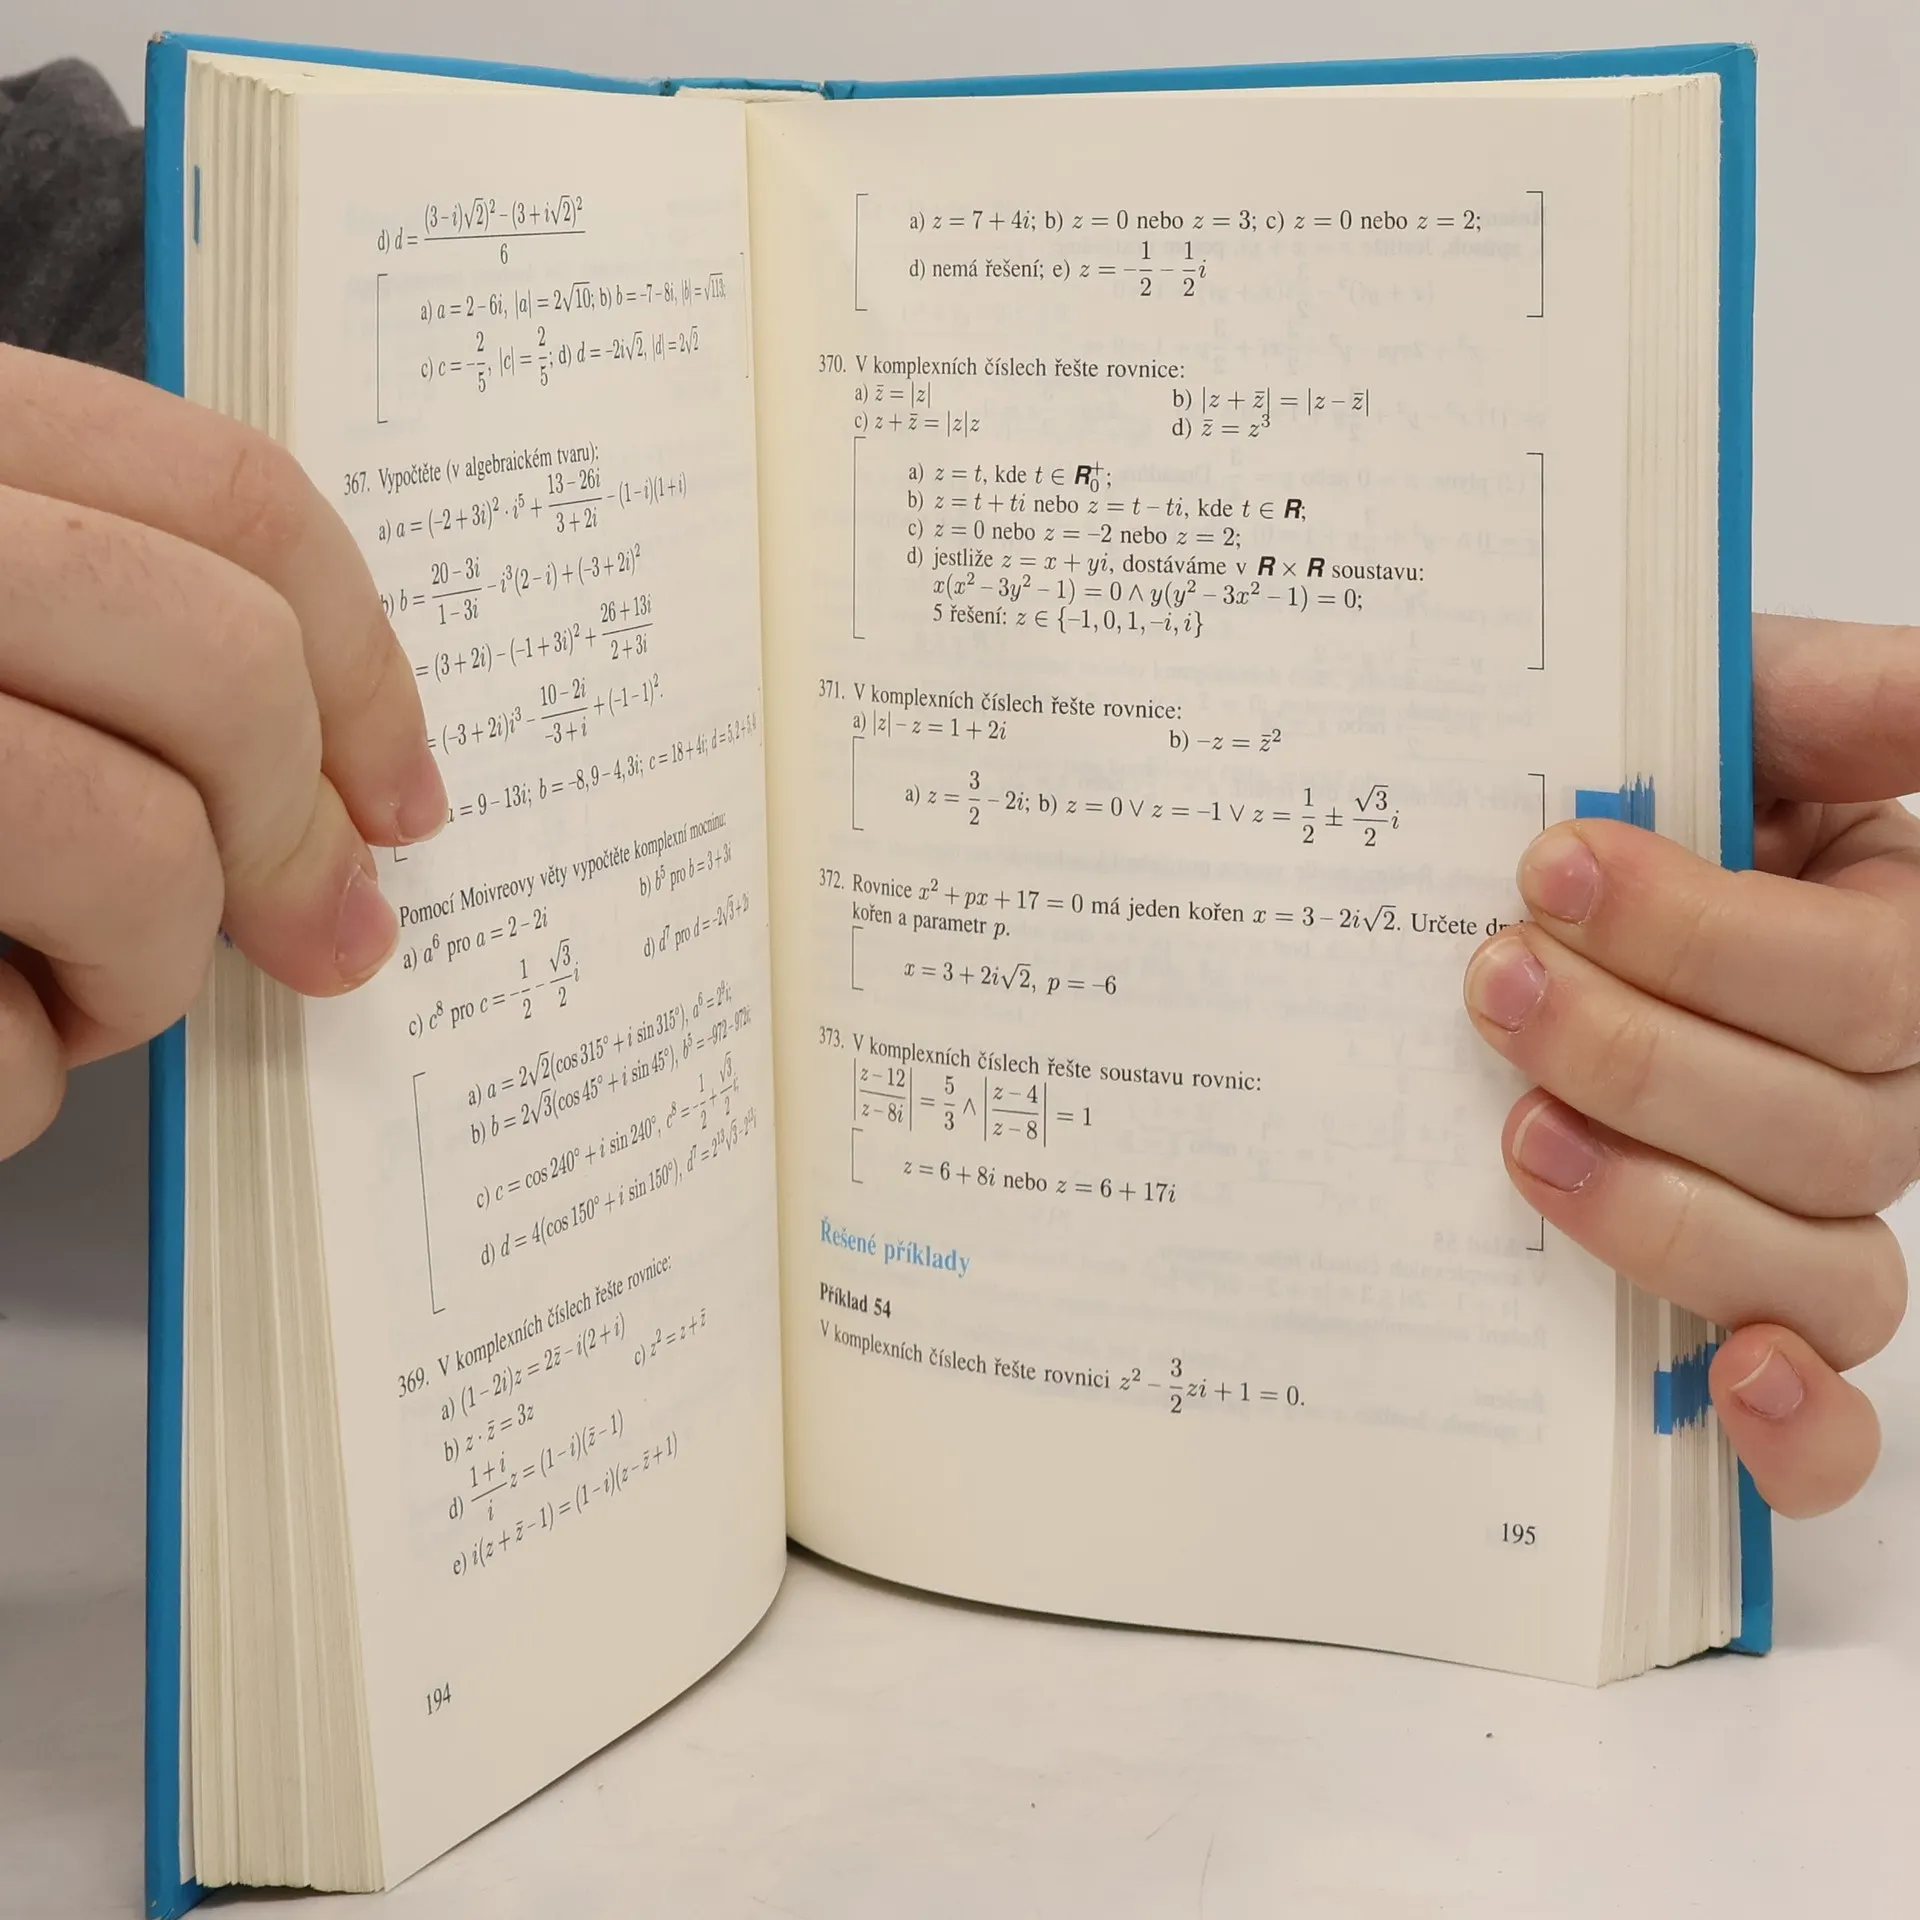 d) d = \frac{(3-i)\sqrt{2})^2-(3+i\sqrt{2})^2}{6}
a) a = 2-6i, |a| = 2\sqrt{10}; b) b = -7-8i, |b| = \sqrt{113};
c) c = -\frac{2}{5}, |c| = \frac{2}{5}; d) d = -2i\sqrt{2}, |d| = 2\sqrt{2}
367. Vypočtěte (v algebraickém tvaru):
a) a = (-2+3i)^2 · i^5 + \frac{13-26i}{3+2i} - (1-i)(1+i)
b) b = \frac{20-3i}{1-3i} - i^3(2-i) + (-3+2i)^2
= (3+2i) - (-1+3i)^2 + \frac{26+13i}{2+3i}
= (-3+2i)i^3 - \frac{10-2i}{-3+i} + (-1-1)^2.
a = 9-13i; b = -8,9-4,3i; c = 18+4i; d = 5,2+5,4i
Pomocí Moivreovy věty vypočtěte komplexní mocninu:
a) a^6 pro a = 2-2i b) b^5 pro b = 3+3i
c) c^8 pro c = -\frac{1}{2} - \frac{\sqrt{3}}{2}i d) d^7 pro d = -2\sqrt{3}+2i
a) a = 2\sqrt{2}(cos 315° + i sin 315°), a^6 = 2^9i;
b) b = 2\sqrt{3}(cos 45° + i sin 45°), b^5 = -972-972i;
c) c = cos 240° + i sin 240°, c^8 = -\frac{1}{2} + \frac{\sqrt{3}}{2}i;
d) d = 4(cos 150° + i sin 150°), d^7 = 2^{13}\sqrt{3}-2^{13}i
369. V komplexních číslech řešte rovnice:
a) (1-2i)z = 2z̄ - i(2+i)
b) z · z̄ = 3z c) z^2 = z+z̄
d) \frac{1+i}{i}z = (1-i)(z̄-1)
e) i(z+z̄-1) = (1-i)(z-z̄+1)
194
a) z = 7+4i; b) z = 0 nebo z = 3; c) z = 0 nebo z = 2;
d) nemá řešení; e) z = -\frac{1}{2} - \frac{1}{2}i
370. V komplexních číslech řešte rovnice:
a) z̄ = |z| b) |z+z̄| = |z-z̄|
c) z+z̄ = |z|z d) z̄ = z^3
a) z = t, kde t ∈ R_0^+;
b) z = t+ti nebo z = t-ti, kde t ∈ R;
c) z = 0 nebo z = -2 nebo z = 2;
d) jestliže z = x+yi, dostáváme v R × R soustavu:
x(x^2-3y^2-1) = 0 ∧ y(y^2-3x^2-1) = 0;
5 řešení: z ∈ {-1, 0, 1, -i, i}
371. V komplexních číslech řešte rovnice:
a) |z|-z = 1+2i b) -z = z̄^2
a) z = \frac{3}{2} - 2i; b) z = 0 ∨ z = -1 ∨ z = \frac{1}{2} ± \frac{\sqrt{3}}{2}i
372. Rovnice x^2+px+17 = 0 má jeden kořen x = 3-2i\sqrt{2}. Určete
kořen a parametr p.
x = 3+2i\sqrt{2}, p = -6
373. V komplexních číslech řešte soustavu rovnic:
|\frac{z-12}{z-8i}| = \frac{5}{3} ∧ |\frac{z-4}{z-8}| = 1
z = 6+8i nebo z = 6+17i
Řešené příklady
Příklad 54
V komplexních číslech řešte rovnici z^2 - \frac{3}{2}zi + 1 = 0.
195